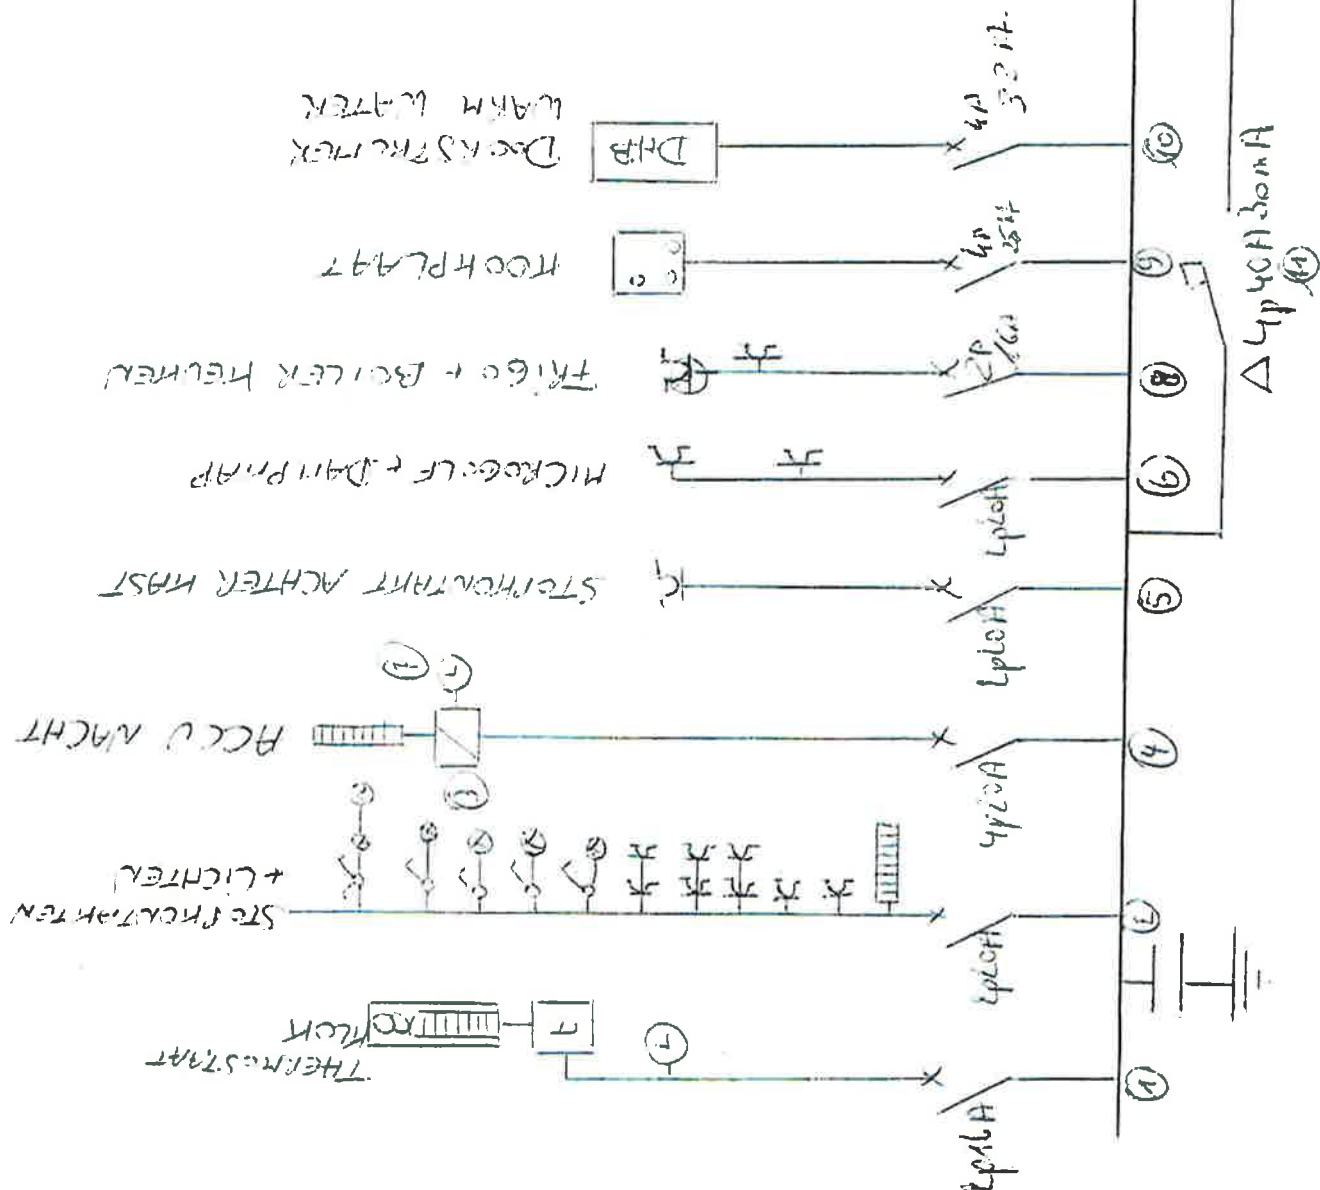 WARM WATER
DOORSTROMER
DHB
4P
32A
10
KOOKPLAAT
4P
25A
9
FRIGO + BOILER KEUKEN
2P
16A
8
MICROGOLF + DAMPKAP
2p20A
6
STOPKONTAKT ACHTER KAST
2p20A
5
ACCU NACHT
7
3
4p20A
4
STOPKONTAKTEN
+ LICHTEN
2p20A
2
THERMOSTAAT
KLOK
T
2p16A
1
Δ 4p 40A 30mA
11